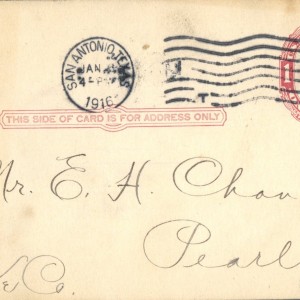 SAN ANTONIO, TEXAS
JAN
4-
1916
THIS SIDE OF CARD IS FOR ADDRESS ONLY
Mr. E. H. Chav
Pearl
& Co.